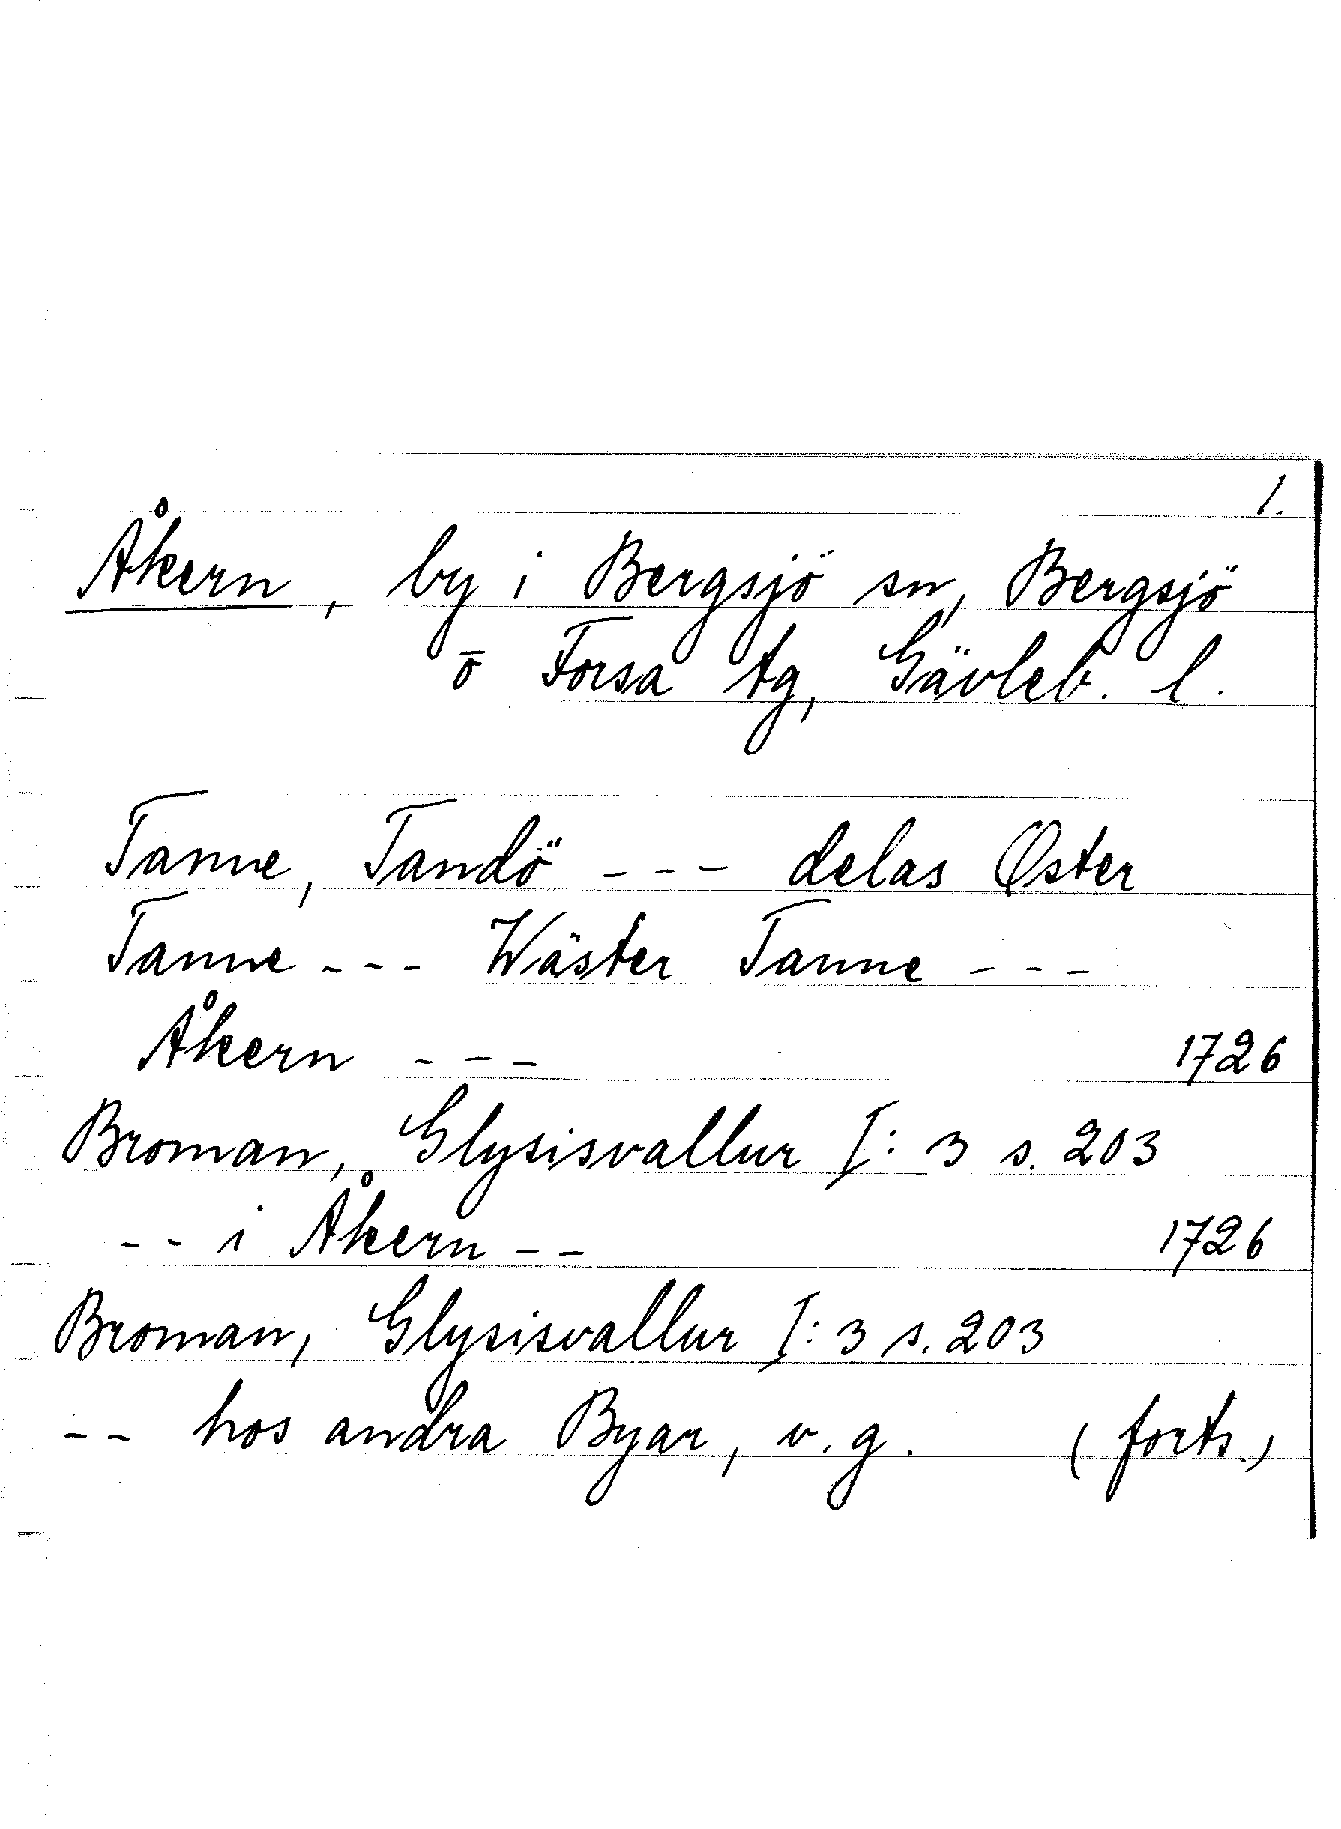 1.
Åkern, by i Bergsjö sn, Bergsjö
o Forsa tg, Gävleb. l.
Tanne, Tandö - - - delas Øster
Tanne - - - Wäster Tanne - - -
Åkern - - - 1726
Broman, Glysisvallur I: 3 s. 203
- - i Åkern - - 1726
Broman, Glysisvallur I: 3 s. 203
- - hos andra Byar, v. g. (forts.)